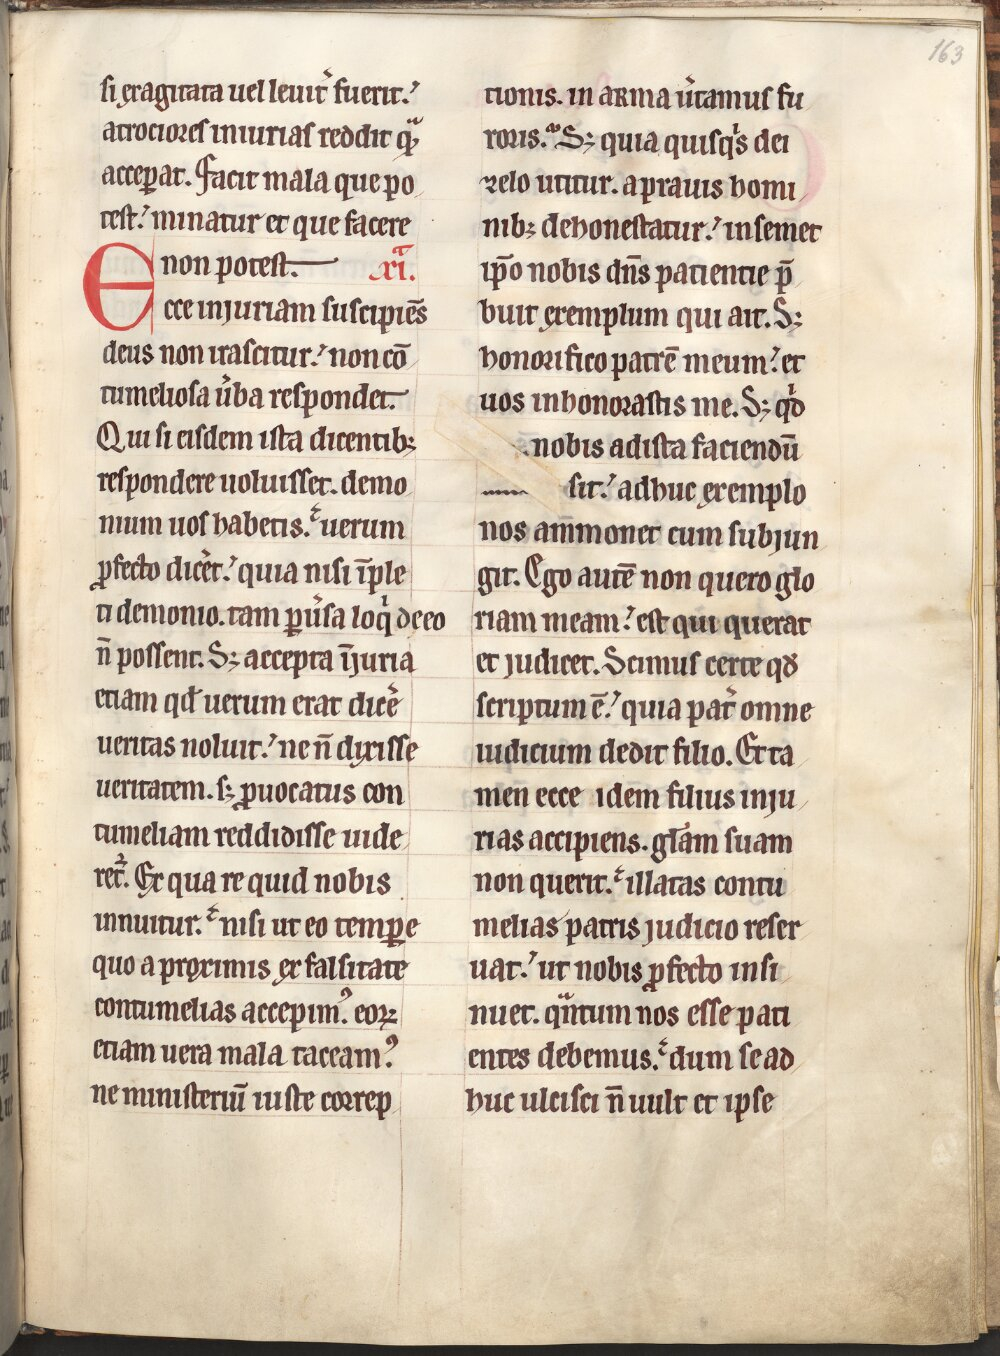 163
si exagitata uel leuit͛ fuerit.
atrociores iniurias reddit qᷓ
acceꝑat. Facit mala que po
test. minatur et que facere
non potest. xi.
Ecce injuriam suscipiēs
deus non irascitur. non cō
tumeliosa u͛ba respondet.
Qui si eisdem ista dicentibꝫ
respondere uoluisset. demo
nium uos habetis. uerum
ꝓfecto dicer͛et. quia nisi īple
ti demonio. tam ꝑu͛sa loqͥ de eo
n̄ possent. Sꝫ accepta ījuria
etiam qd̄ uerum erat dicē͛
ueritas noluit. ne n̄ dixisse
ueritatem. sꝫ ꝓuocatus con
tumeliam reddidisse uide
ret͛. Ex qua re quid nobis
innuitur. nisi ut eo temꝑe
quo a proximis ex falsitate
contumelias accepimꝰ. eoꝝ
etiam uera mala taceamꝰ
ne ministeriū iuste correp
tionis. in arma u͛tamus fu
roris. Sꝫ quia quisqͥs dei
zelo utitur. a prauis homi
nibꝫ dehonestatur. in semet
ip̄o nobis dn̄s patientie p̄
buit exemplum qui ait. Sꝫ
honorifico patrē meum. et
uos inhonorastis me. Sꝫ qͥd
nobis ad ista faciendū
sit. adhuc exemplo
nos am̄monet cum subjun
git. Ego autē non quero glo
riam meam. est qui querat
et judicet. Scimus certe qd̄
scriptum ē. quia pat͛ omne
iudicium dedit filio. Et ta
men ecce idem filius inju
rias accipiens. gl̄am suam
non querit. illatas contu
melias patris judicio reser
uat. ut nobis ꝓfecto insi
nuet. qᷓntum nos esse pati
entes debemus. dum se ad
huc ulcisci n̄ uult et ipse